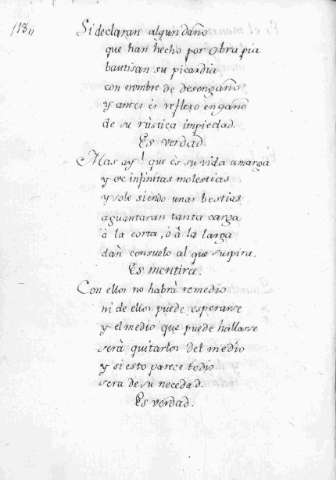 113
Si declaran algun daño
que han hecho por obra pia
bautisan su picardia
con nombre de desengaño
y antes és reflexo engaño
de su rústica impiedad.
Es verdad.
Mas ay! que és su vida amarga
y de infinitas molestias
y solo siendo unas bestias
aguantaran tanta carga
á la corta, ó á la larga
dan consuelo al que suspira.
Es mentira.
Con ellos no habrá remedio
ni de ellos puede esperarse
y el medio que puede hallarse
será quitarlos del medio
y si esto parece todio
sera de su necedad.
Es verdad.